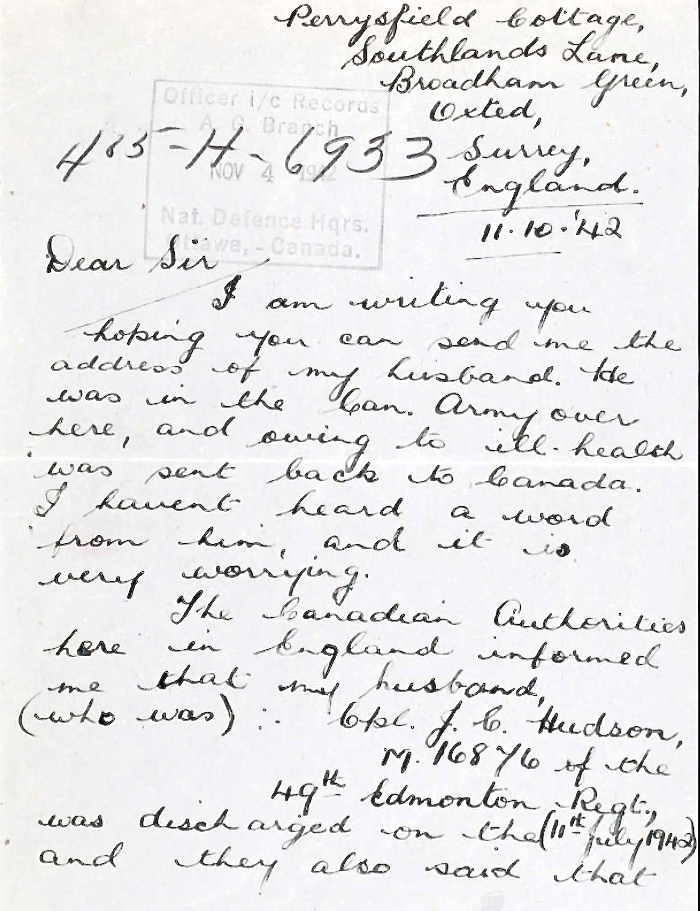 Perrysfield Cottage,
Southlands Lane,
Broadham Green,
Oxted,
Surrey,
England.
11.10.'42
Officer i/c Records
A.G. Branch
NOV 4 1942
Nat. Defence Hqrs.
Ottawa, - Canada.
405-H-6933
Dear Sir
I am writing you
hoping you can send me the
address of my husband. He
was in the Can. Army over
here, and owing to ill-health
was sent back to Canada.
I havent heard a word
from him, and it is
very worrying.
The Canadian Authorities
here in England informed
me that my husband,
(who was) :. Cpl. J. C. Hudson,
M. 16876 of the
49th Edmonton Regt.,
was discharged on the (11th July 1942)
and they also said that